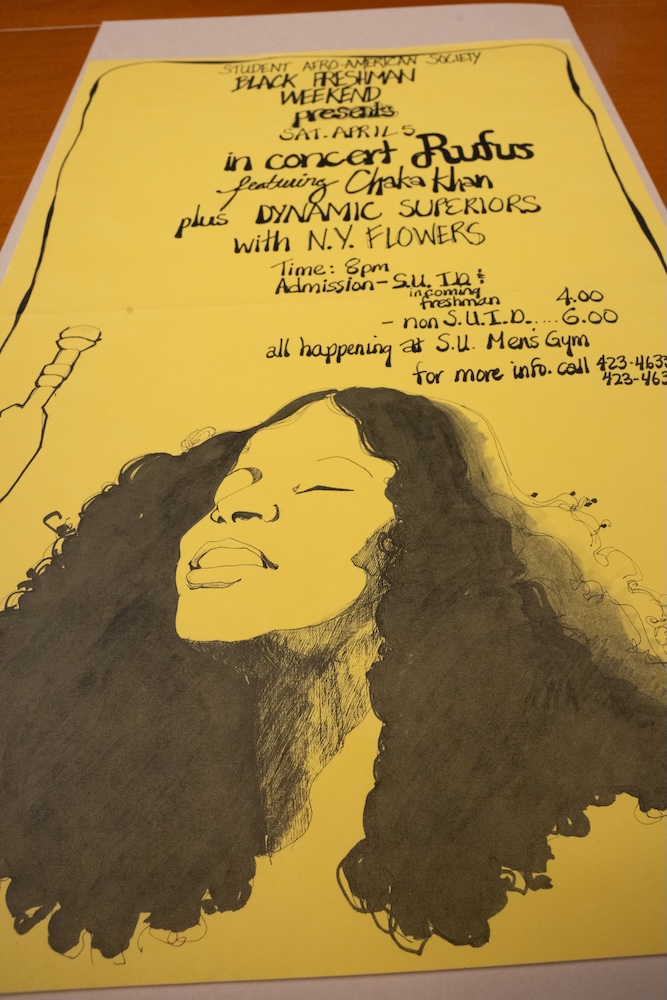 STUDENT AFRO-AMERICAN SOCIETY
BLACK FRESHMAN
WEEKEND
presents
SAT. APRIL 5
in concert Rufus
featuring Chaka Khan
plus DYNAMIC SUPERIORS
with N.Y. FLOWERS
Time: 8pm
Admission - S.U. I.D. &
incoming
freshman 4.00
- non S.U.I.D..... 6.00
all happening at S.U. Mens Gym
for more info. call 423-4633
423-463